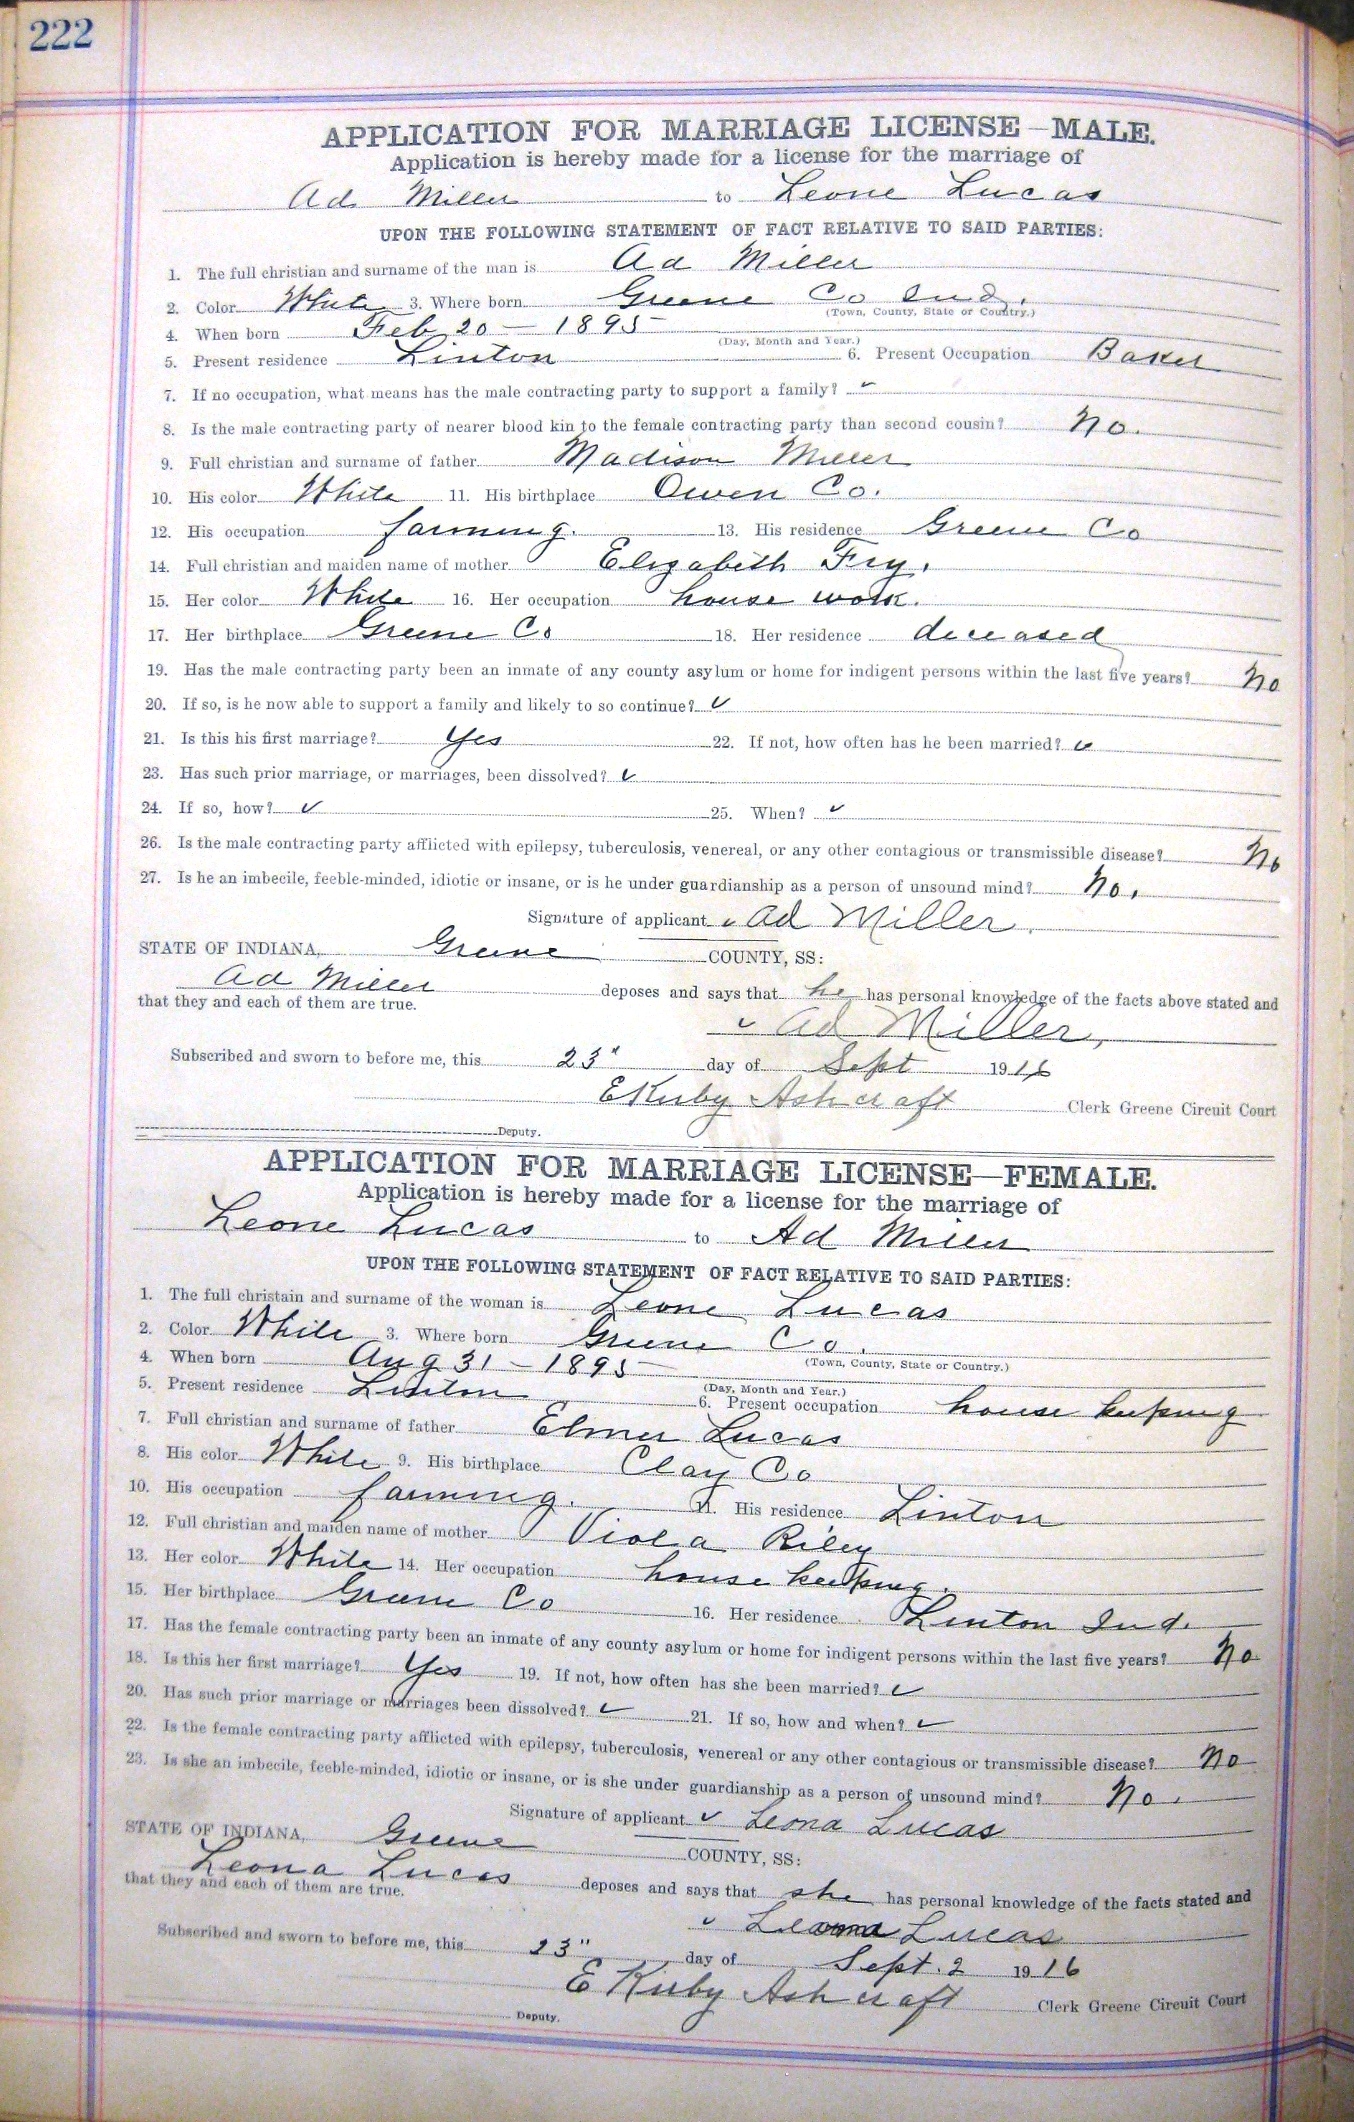 222
APPLICATION FOR MARRIAGE LICENSE—MALE.
Application is hereby made for a license for the marriage of
Ad Miller to Leone Lucas
UPON THE FOLLOWING STATEMENT OF FACT RELATIVE TO SAID PARTIES:
1. The full christian and surname of the man is Ad Miller
2. Color White 3. Where born Greene Co Ind.
(Town, County, State or Country.)
4. When born Feb 20 — 1895
(Day, Month and Year.)
5. Present residence Linton 6. Present Occupation Baker
7. If no occupation, what means has the male contracting party to support a family? ✓
8. Is the male contracting party of nearer blood kin to the female contracting party than second cousin? No.
9. Full christian and surname of father Madison Miller
10. His color White 11. His birthplace Owen Co.
12. His occupation farming. 13. His residence Greene Co
14. Full christian and maiden name of mother Elizabeth Fry.
15. Her color White 16. Her occupation house work.
17. Her birthplace Greene Co 18. Her residence deceased
19. Has the male contracting party been an inmate of any county asylum or home for indigent persons within the last five years? No
20. If so, is he now able to support a family and likely to so continue? ✓
21. Is this his first marriage? Yes 22. If not, how often has he been married? ✓
23. Has such prior marriage, or marriages, been dissolved? ✓
24. If so, how? ✓ 25. When? ✓
26. Is the male contracting party afflicted with epilepsy, tuberculosis, venereal, or any other contagious or transmissible disease? No
27. Is he an imbecile, feeble-minded, idiotic or insane, or is he under guardianship as a person of unsound mind? No.
Signature of applicant ✓ Ad Miller.
STATE OF INDIANA, Greene COUNTY, SS:
Ad Miller deposes and says that he has personal knowledge of the facts above stated and
that they and each of them are true.
✓ Ad Miller,
Subscribed and sworn to before me, this 23" day of Sept 1916
E Kirby Ashcraft Clerk Greene Circuit Court
Deputy.
APPLICATION FOR MARRIAGE LICENSE—FEMALE.
Application is hereby made for a license for the marriage of
Leone Lucas to Ad Miller
UPON THE FOLLOWING STATEMENT OF FACT RELATIVE TO SAID PARTIES:
1. The full christain and surname of the woman is Leone Lucas
2. Color White 3. Where born Greene Co.
(Town, County, State or Country.)
4. When born Aug 31 — 1895
(Day, Month and Year.)
5. Present residence Linton 6. Present occupation house keeping
7. Full christian and surname of father Elmer Lucas
8. His color White 9. His birthplace Clay Co
10. His occupation farming. 11. His residence Linton
12. Full christian and maiden name of mother Viola Riley
13. Her color White 14. Her occupation house keeping.
15. Her birthplace Greene Co 16. Her residence Linton Ind.
17. Has the female contracting party been an inmate of any county asylum or home for indigent persons within the last five years? No
18. Is this her first marriage? Yes 19. If not, how often has she been married? ✓
20. Has such prior marriage or marriages been dissolved? ✓ 21. If so, how and when? ✓
22. Is the female contracting party afflicted with epilepsy, tuberculosis, venereal or any other contagious or transmissible disease? No
23. Is she an imbecile, feeble-minded, idiotic or insane, or is she under guardianship as a person of unsound mind? No.
Signature of applicant ✓ Leona Lucas
STATE OF INDIANA, Greene COUNTY, SS:
Leona Lucas deposes and says that she has personal knowledge of the facts stated and
that they and each of them are true.
✓ Leona Lucas
Subscribed and sworn to before me, this 23" day of Sept. 2 1916
E Kirby Ashcraft Clerk Greene Circuit Court
Deputy.